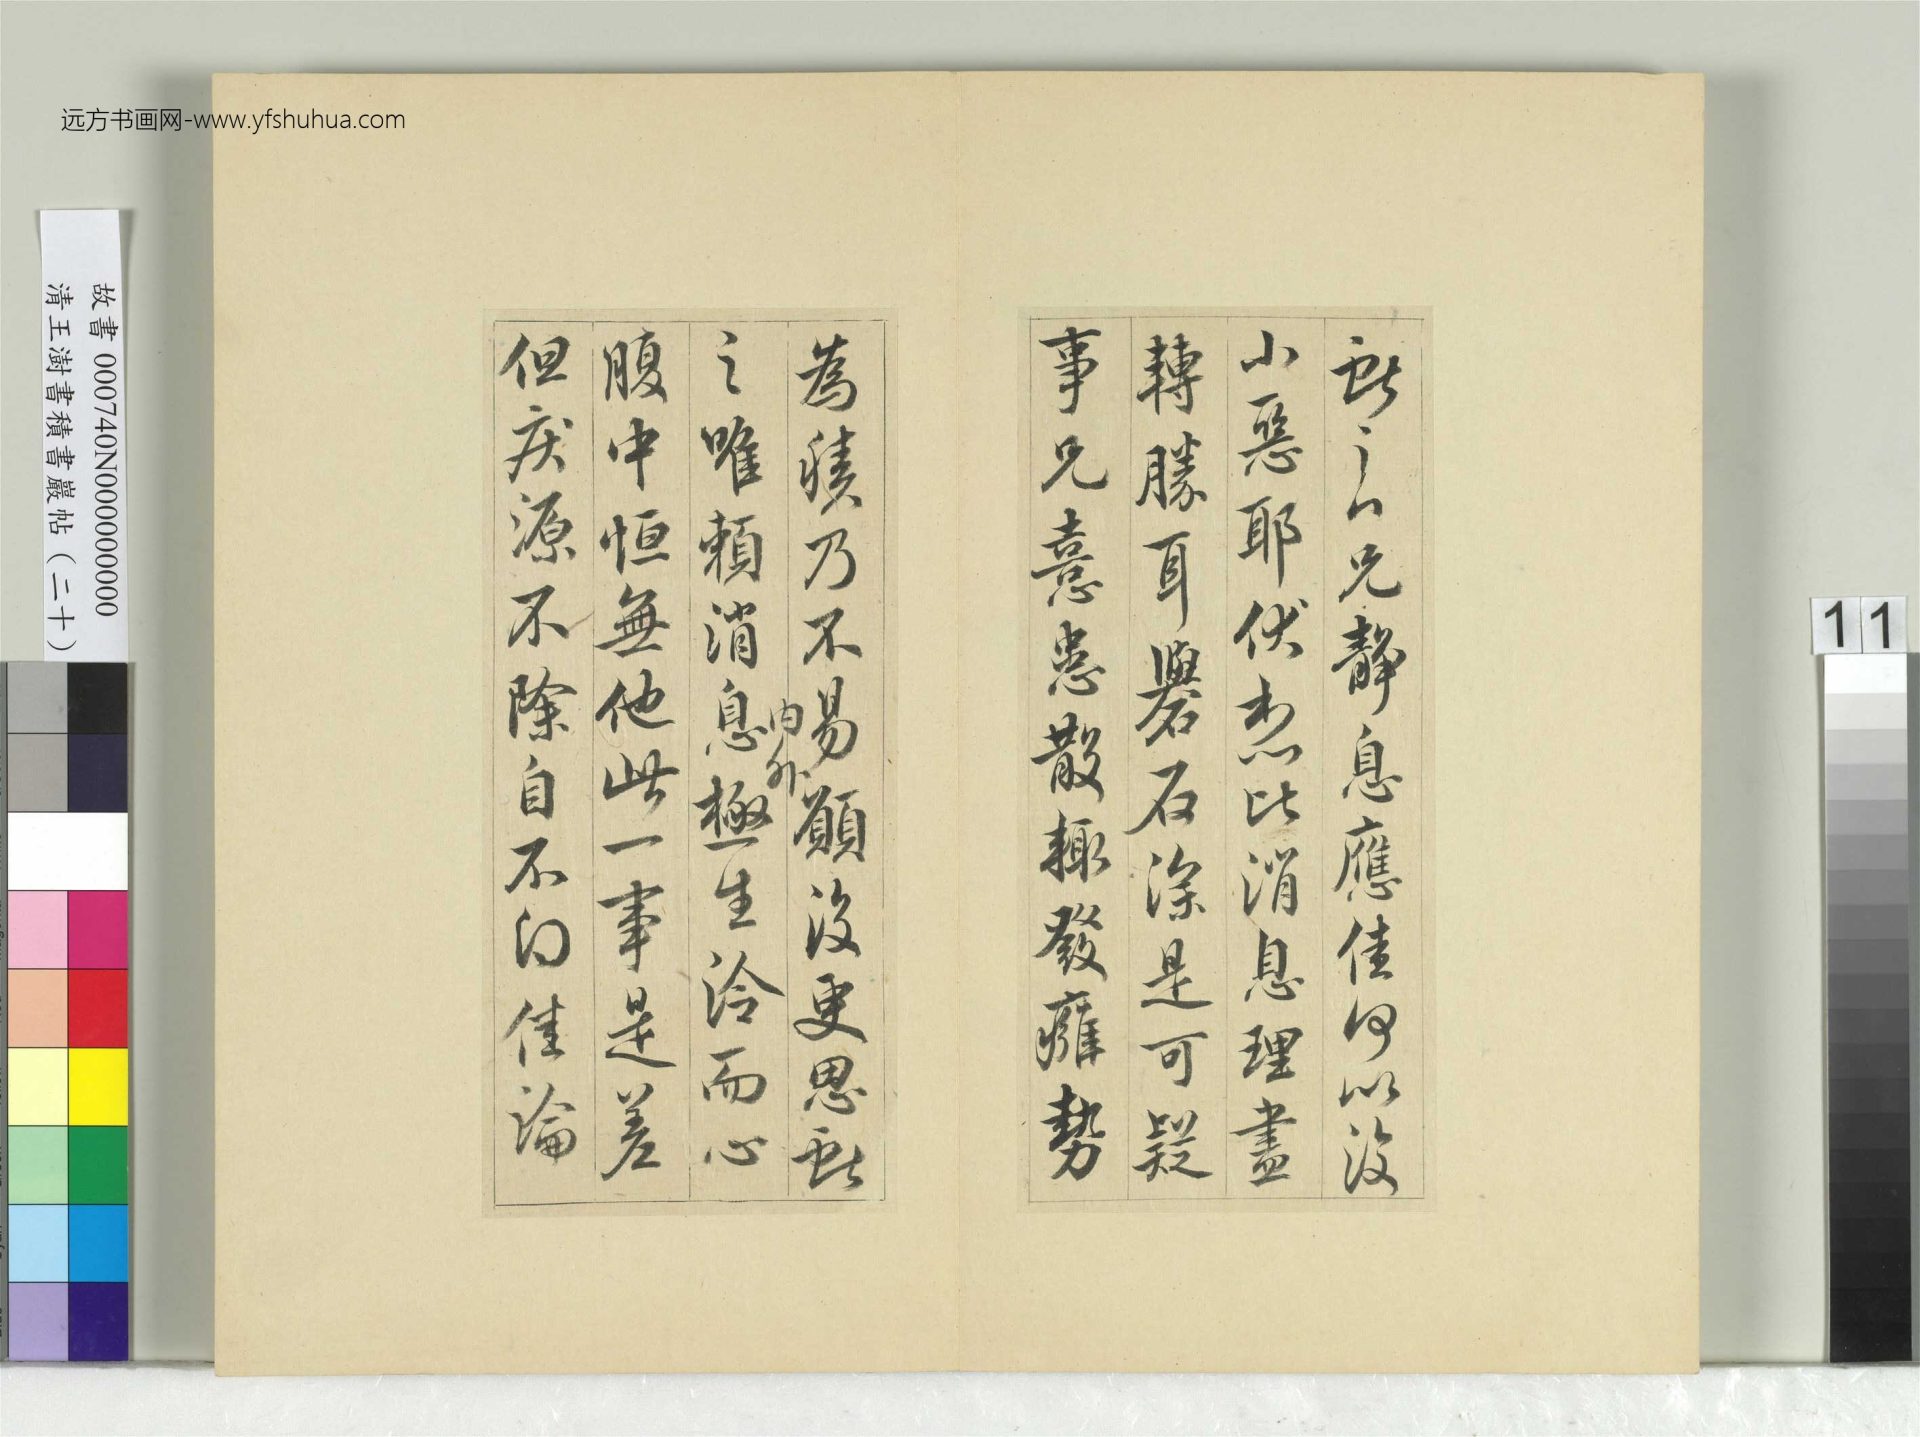 献之白兄静息應佳何以復
小惡耶伏想比消息理盡
轉勝耳礜石深是可疑
事兄憙患散輙發癰勢
為積乃不易願復更思献
之唯賴消息内外極生冷而心
腹中恒無他此一事是差
但疾源不除自不得佳論
远方书画网-www.yfshuhua.com
故書 000740N000000000
清王澍書積書巖帖（二十）
11